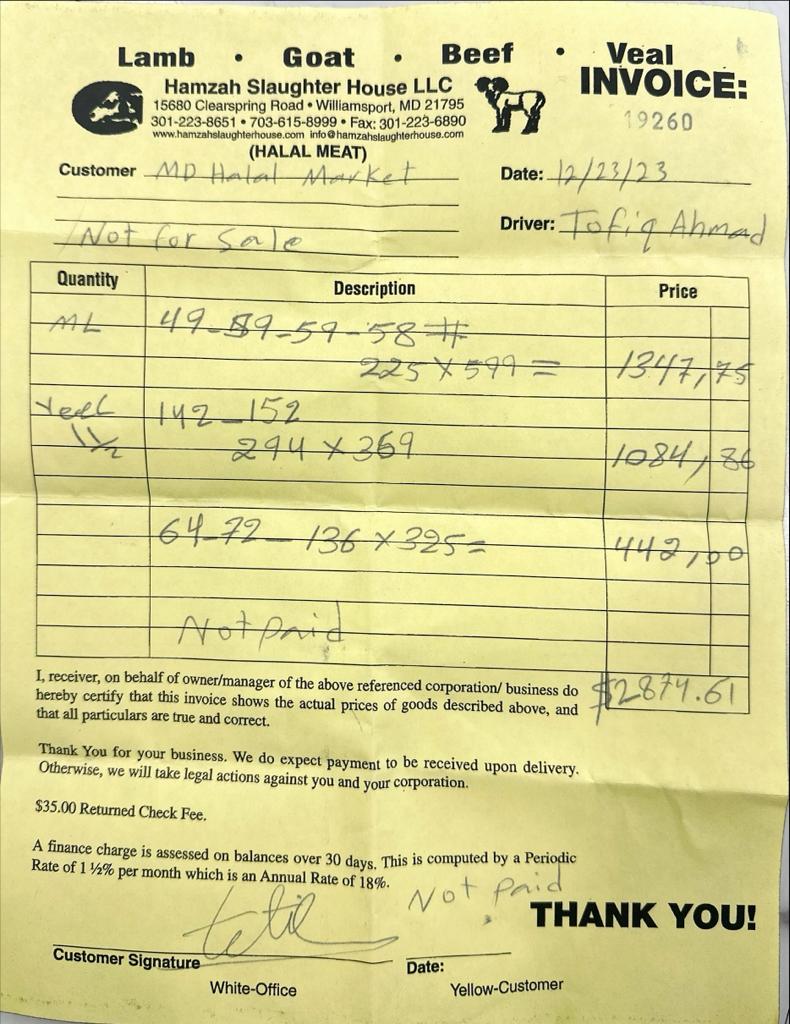 Lamb • Goat • Beef • Veal
INVOICE:
19260
Hamzah Slaughter House LLC
15680 Clearspring Road • Williamsport, MD 21795
301-223-8651 • 703-615-8999 • Fax: 301-223-6890
www.hamzahslaughterhouse.com info@hamzahslaughterhouse.com
(HALAL MEAT)
Customer MD Halal Market
Date: 12/23/23
Driver: Tofiq Ahmad
Not for Sale
Quantity Description Price
ML 49-59-59-58 #
225 X 599 = 1347,75
Veal 142-152
294 X 369 1084,86
64-72-136 X 325= 442,00
Not paid
$2874.61
I, receiver, on behalf of owner/manager of the above referenced corporation/ business do
hereby certify that this invoice shows the actual prices of goods described above, and
that all particulars are true and correct.
Thank You for your business. We do expect payment to be received upon delivery.
Otherwise, we will take legal actions against you and your corporation.
$35.00 Returned Check Fee.
A finance charge is assessed on balances over 30 days. This is computed by a Periodic
Rate of 1 ½% per month which is an Annual Rate of 18%.
Not Paid
THANK YOU!
Customer Signature
Date:
White-Office
Yellow-Customer